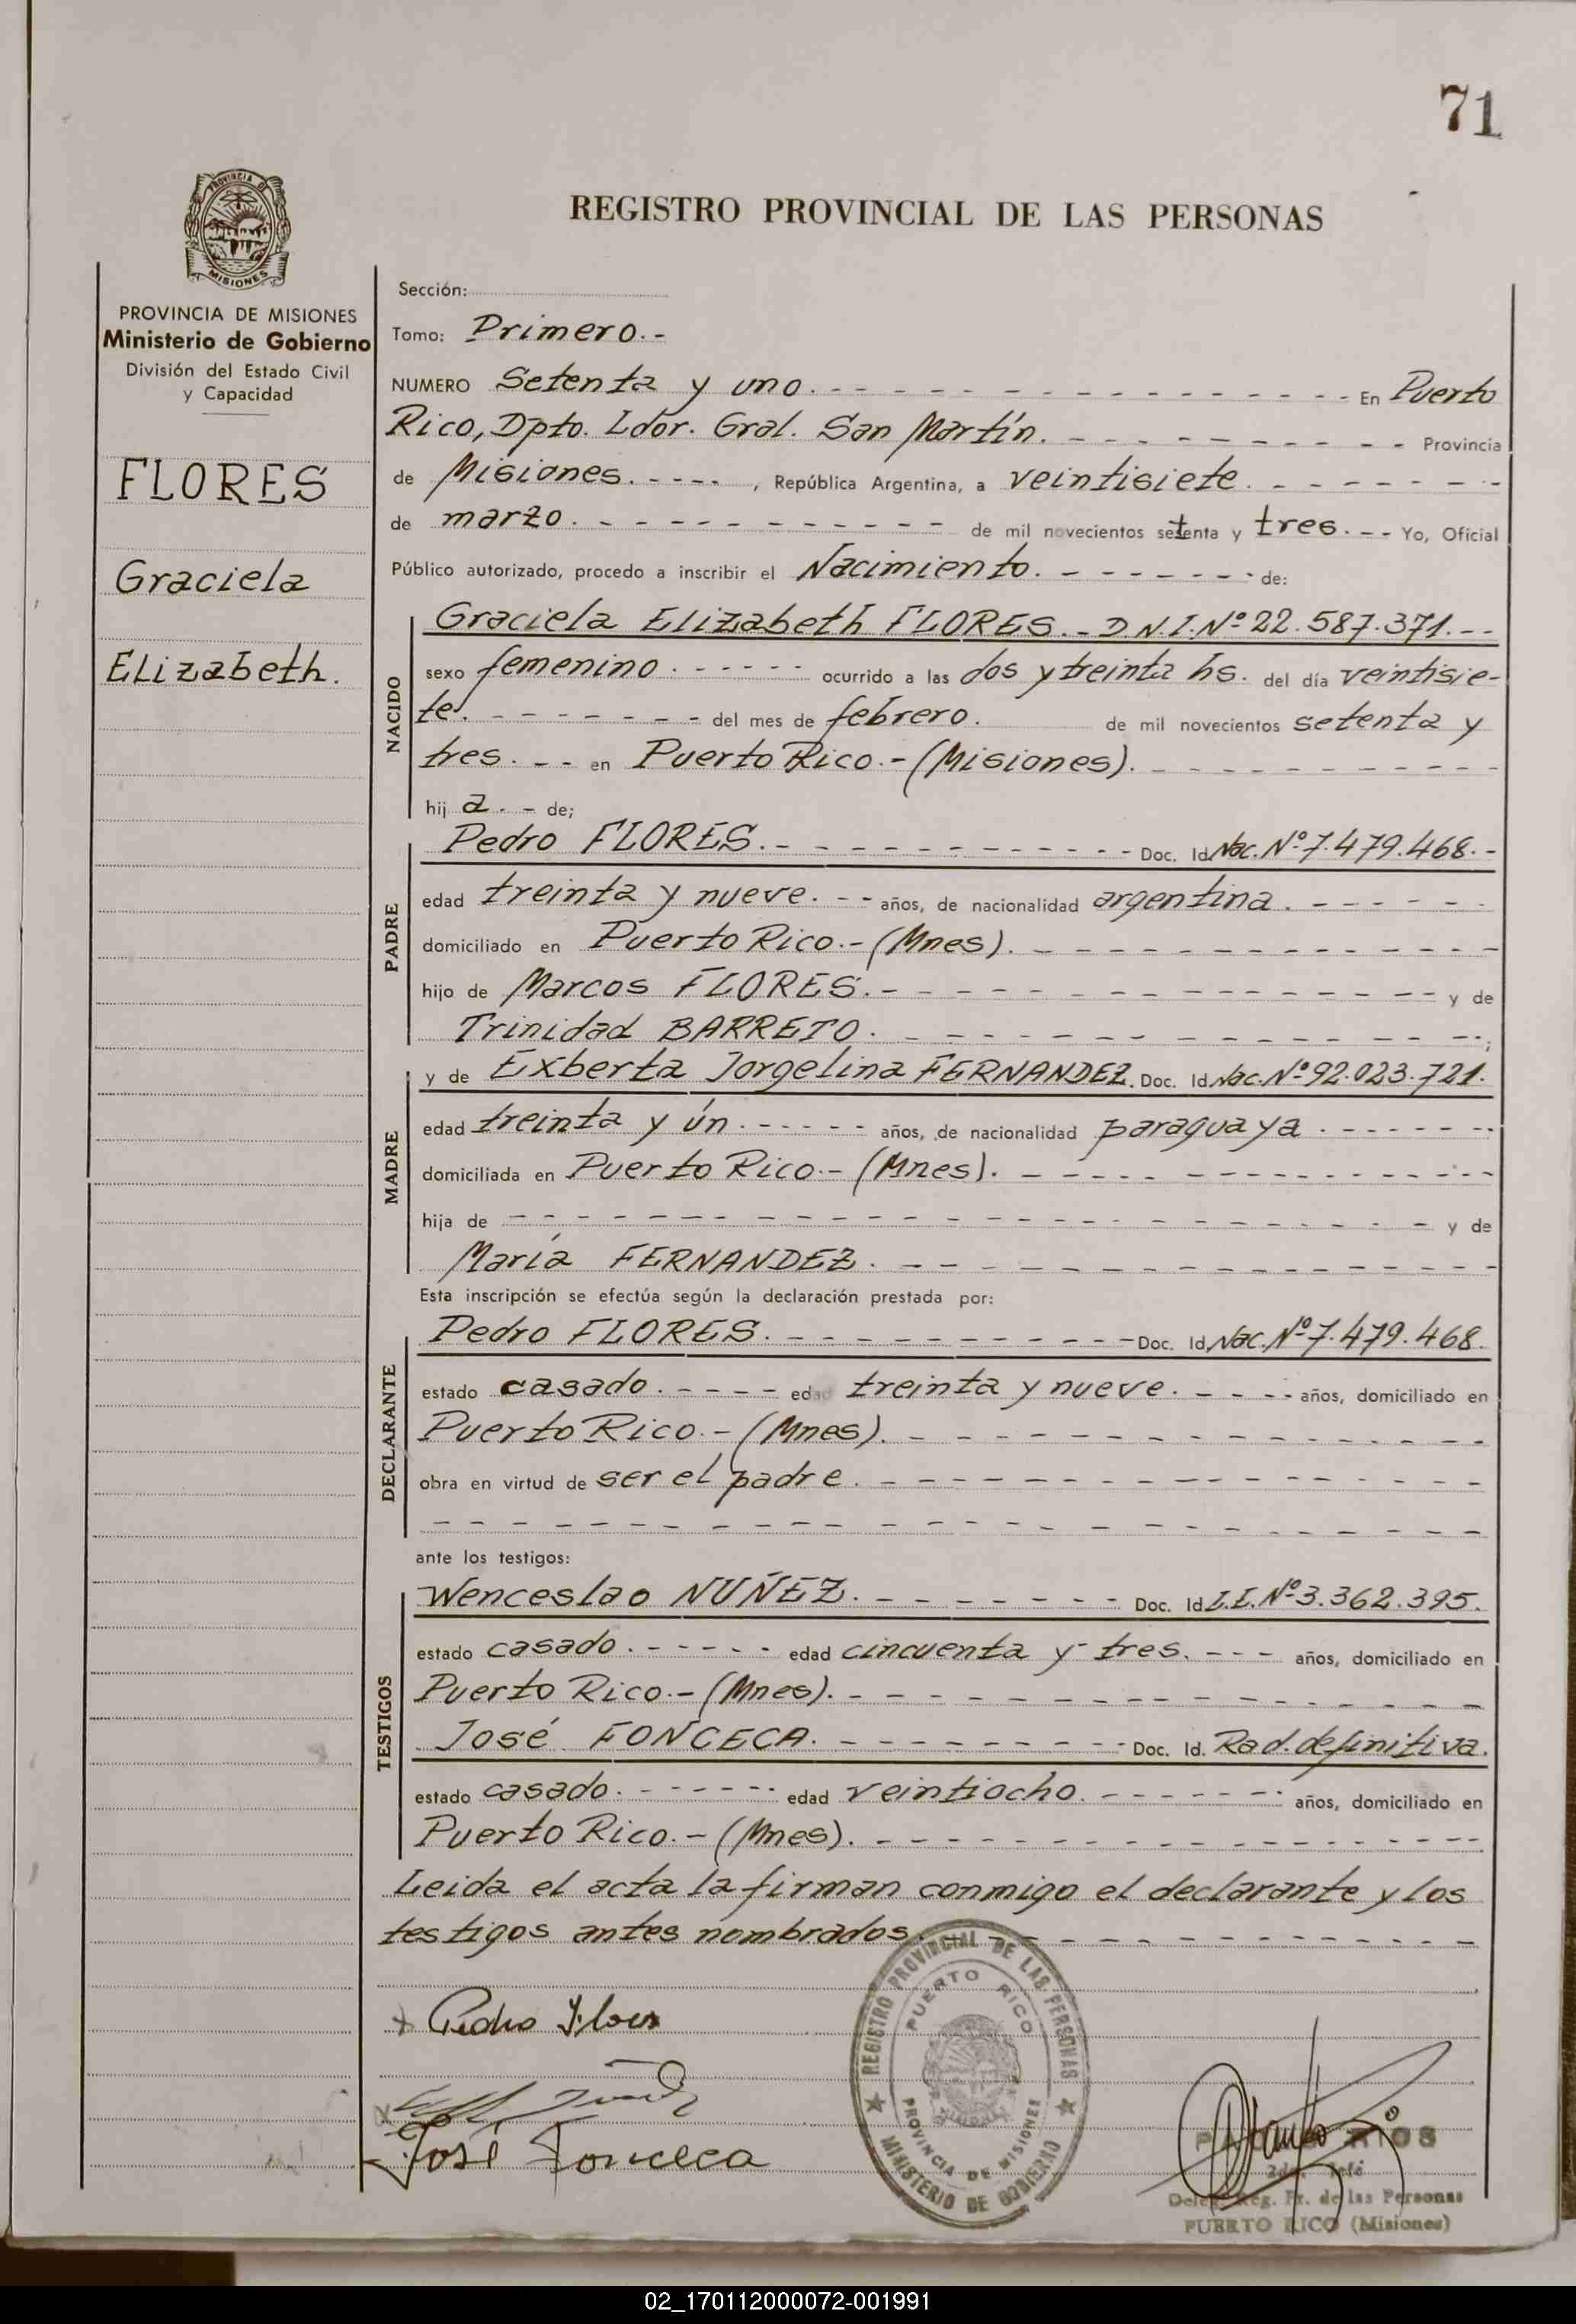 71
PROVINCIA DE
MISIONES
REGISTRO PROVINCIAL DE LAS PERSONAS
PROVINCIA DE MISIONES
Ministerio de Gobierno
División del Estado Civil
y Capacidad
FLORES
Graciela
Elizabeth.
Sección:
Tomo: Primero.-
NUMERO Setenta y uno. - - - - - - - - - - - - En Puerto
Rico, Dpto. Ldor. Gral. San Martín. - - - - - - - - - Provincia
de Misiones. - - - - , República Argentina, a veintisiete. - - - - - - -
de marzo. - - - - - - - - - - - de mil novecientos setenta y tres. - - Yo, Oficial
Público autorizado, procedo a inscribir el Nacimiento. - - - - - - - de:
NACIDO
Graciela Elizabeth FLORES. - D.N.I. Nº 22.587.371. - -
sexo femenino. - - - - - - ocurrido a las dos y treinta hs. del día veintisie-
te. - - - - - - - del mes de febrero. de mil novecientos setenta y
tres. - - en Puerto Rico.-(Misiones). - - - - - - - - - -
hij a. - de;
PADRE
Pedro FLORES. - - - - - - - - - - - Doc. Id. Nac. Nº 7.479.468. -
edad treinta y nueve. - - años, de nacionalidad argentina. - - - - - -
domiciliado en Puerto Rico.-(Mnes). - - - - - - - - - - - -
hijo de Marcos FLORES. - - - - - - - - - - - - - - y de
Trinidad BARRETO. - - - - - - - - - - - - - - ;
MADRE
y de Exberta Jorgelina FERNANDEZ. Doc. Id. Nac. Nº 92.023.721.
edad treinta y ún. - - - - - años, de nacionalidad paraguaya. - - - - - -
domiciliada en Puerto Rico.-(Mnes). - - - - - - - - - - - - -
hija de - - - - - - - - - - - - - - - - - - - - - - y de
María FERNANDEZ. - - - - - - - - - - - - - - -
Esta inscripción se efectúa según la declaración prestada por:
DECLARANTE
Pedro FLORES. - - - - - - - - - - - Doc. Id. Nac. Nº 7.479.468.
estado casado. - - - - edad treinta y nueve. - - - - años, domiciliado en
Puerto Rico.-(Mnes). - - - - - - - - - - - - - -
obra en virtud de ser el padre. - - - - - - - - - - - - - -
- - - - - - - - - - - - - - - - - - - - - - - - -
ante los testigos:
TESTIGOS
Wenceslao NUÑEZ. - - - - - - - Doc. Id. L.E. Nº 3.362.395.
estado casado. - - - - - edad cincuenta y tres. - - - años, domiciliado en
Puerto Rico.-(Mnes). - - - - - - - - - - - - - -
José FONCECA. - - - - - - - - - Doc. Id. Rad. definitiva.
estado casado. - - - - - - edad veintiocho. - - - - - - años, domiciliado en
Puerto Rico.-(Mnes). - - - - - - - - - - - - - - -
Leida el acta la firman conmigo el declarante y los
testigos antes nombrados. - - - - - - - - - - - - -
x Pedro Flores
José Fonceca
REGISTRO PROVINCIAL DE LAS PERSONAS
MINISTERIO DE GOBIERNO
PUERTO RICO
PROVINCIA DE MISIONES
RIOS
2do. Jefe
Deleg. Reg. Pr. de las Personas
PUERTO RICO (Misiones)
02_170112000072-001991